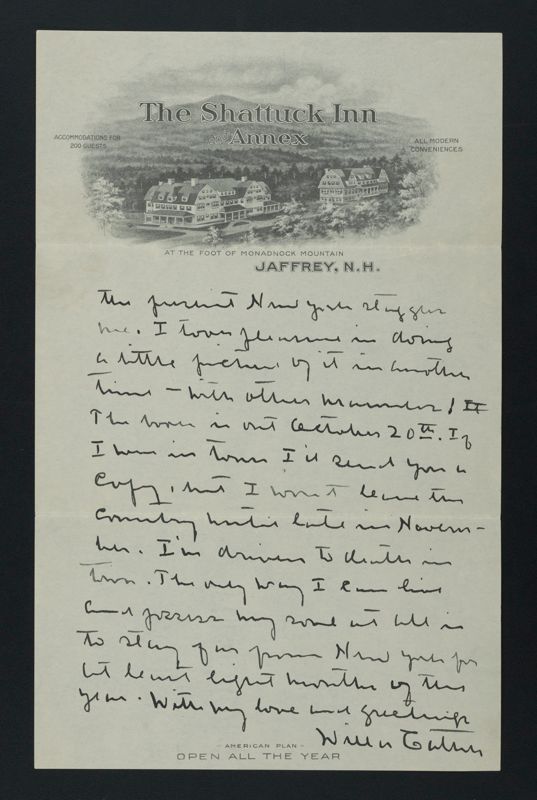 The Shattuck Inn
and Annex
ACCOMMODATIONS FOR
200 GUESTS
ALL MODERN
CONVENIENCES
AT THE FOOT OF MONADNOCK MOUNTAIN
JAFFREY, N.H.
the present New York staggers
me. I took pleasure in doing
a little picture of it in another
time — with other manners!
The book is out October 20th. If
I were in town I'd send you a
copy, but I won't leave the
country until late in Novem-
ber. I'm driven to death in
town. The only way I can live
and possess my soul at all is
to stay far from New York for
at least eight months of the
year. With my love and greetings
Willa Cather
- AMERICAN PLAN -
OPEN ALL THE YEAR